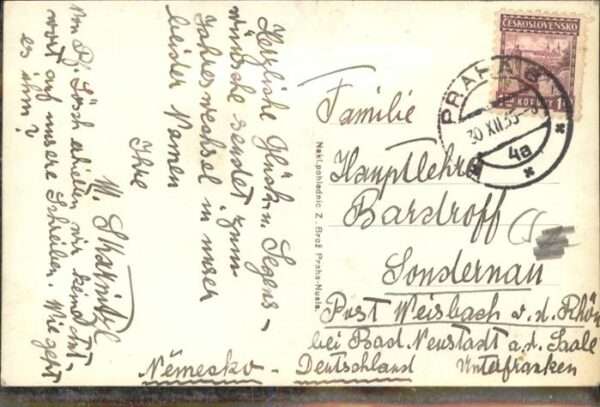 Herzliche Glück u. Segens-
wünsche sendet zum
Jahreswechsel in unser
beider Namen
Ihre
M.
Von Pf. erhielten wir keine Ant-
wort auf unsere Schreiben. Wie geht
es ihm?
Nakl. pohlednic Z. Brož Praha-Nusle.
ČESKOSLOVENSKO
1 KORUNA 1
PRAHA 8
30 XII 35
4a
Familie
Hauptlehrer
Bardroff
Sondernau
Post Weisbach v. d. Rhön
bei Bad Neustadt a. d. Saale
Německo - Deutschland Unterfranken